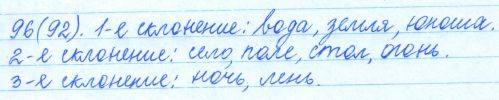 96(92). 1-е склонение: вода, земля, юноша.
2-е склонение: село, поле, стол, огонь.
3-е склонение: ночь, лень.